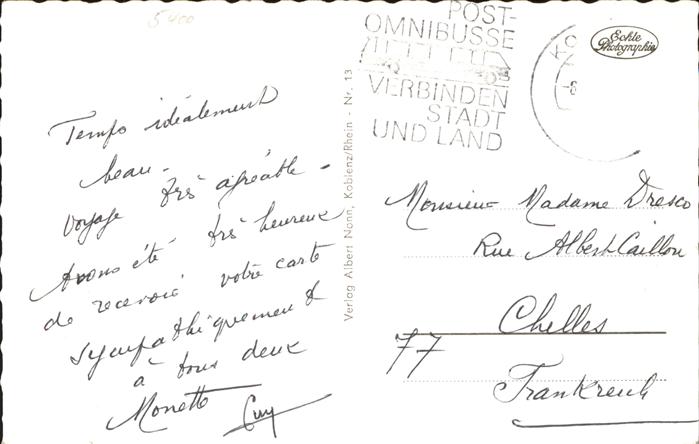 5400
POST-
OMNIBUSSE
VERBINDEN
STADT
UND LAND
KO
-8
Echte
Photographie
Temps idéalement
beau -
Voyage très agréable -
Avons été très heureux
de recevoir votre carte
Sympathiquement
à tous deux
Monette Guy
Verlag Albert Nonn, Koblenz/Rhein - Nr. 13
Monsieur Madame Dresco
Rue Albert Caillou
Chelles
77
Frankreich